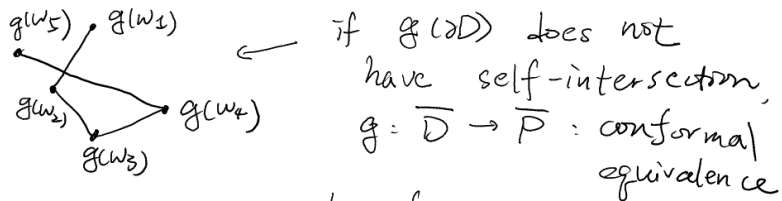 g(w5) g(w1)
g(w2) g(w3) g(w4)
← if g(∂D) does not
have self-intersection,
g : D̅ → P̅ : conformal
equivalence